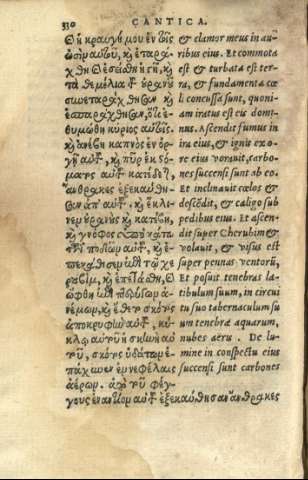 330 CANTICA.
ἡ κραυγή μου ἐν τοῖς
ὠσὶν αὐτοῦ, καὶ ἐταρά-
χθη καὶ ἐσείσθη ἡ γῆ, καὶ
τὰ θεμέλια τοῦ οὐρανοῦ
συνεταράχθησαν καὶ
ἐσπαράχθησαν, ὅτι ἐ-
θυμώθη κύριος αὐτοῖς.
καὶ ἀνέβη καπνὸς ἐν ὀρ-
γῇ αὐτοῦ, καὶ πῦρ ἐκ στό-
ματος αὐτοῦ κατέδεται,
ἄνθρακες ἐξεκαύθη-
σαν ἀπ' αὐτοῦ. καὶ ἔκλι-
νεν οὐρανοὺς καὶ κατέβη,
καὶ γνόφος ὑποκάτω
τῶν ποδῶν αὐτοῦ. καὶ ἐ-
πεκάθισεν ἐπὶ τῷ χε-
ρουβὶμ, καὶ ἐπετάσθη, καὶ
ὤφθη ἐπὶ πτερύγων ἀ-
νέμων, καὶ ἔθετο σκότος
ἀποκρυφὴν αὐτοῦ, κύ-
κλῳ αὐτοῦ ἡ σκηνὴ αὐ-
τοῦ, σκότος ὑδάτων ἐ-
πάχυνεν ἐν νεφέλαις
ἀέρων. ἀπὸ τοῦ φέγ-
γους ἐναντίον αὐτοῦ ἐξεκαύθησαν ἄνθρακες
& clamor meus in au-
ribus eius. Et commota
est & turbata est ter-
ra, & fundamenta cœ
li concussa sunt, quoni-
am iratus est eis domi-
nus. Ascendit fumus in
ira eius, & ignis ex o-
re eius vorauit, carbo-
nes succensi sunt ab eo.
Et inclinauit cœlos &
descēdit, & caligo sub
pedibus eius. Et ascen-
dit super Cherubim &
volauit, & visus est
super pennas ventorū,
Et posuit tenebras la-
tibulum suum, in circui
tu suo tabernaculum su
um tenebra aquarum,
nubes aëru . De lu-
mine in conspectu eius
succensi sunt carbones